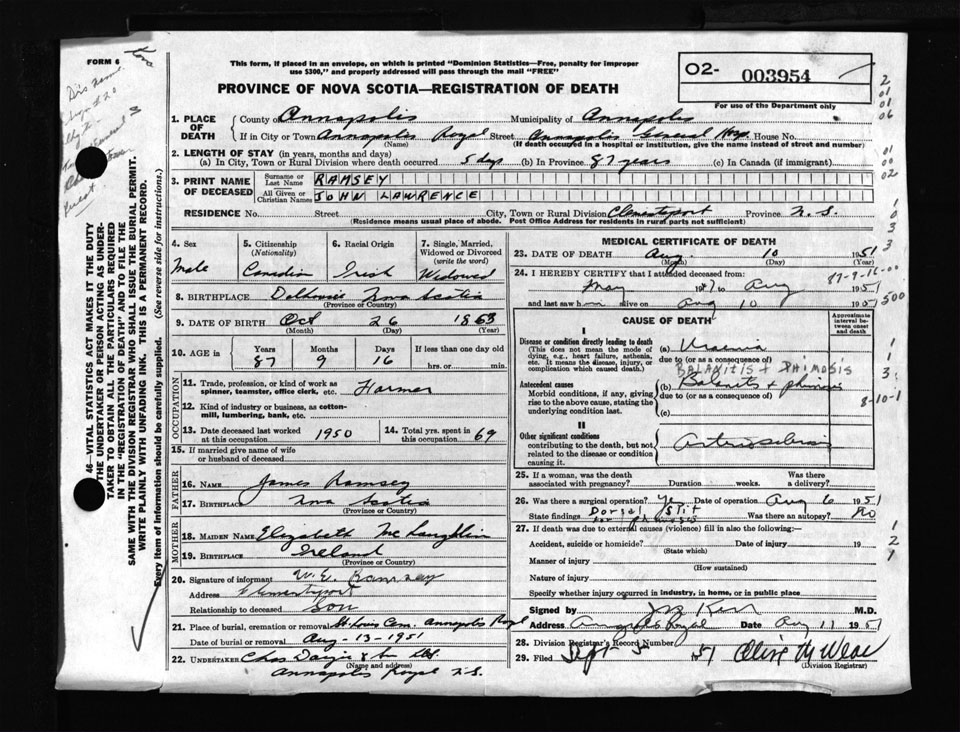 FORM 6
This form, if placed in an envelope, on which is printed "Dominion Statistics—Free, penalty for improper
use $300," and properly addressed will pass through the mail "FREE"
PROVINCE OF NOVA SCOTIA—REGISTRATION OF DEATH
O2- 003954
For use of the Department only
46—VITAL STATISTICS ACT MAKES IT THE DUTY
OF THE UNDERTAKER OR PERSON ACTING AS UNDER-
TAKER TO OBTAIN ALL THE PARTICULARS REQUIRED
IN THE "REGISTRATION OF DEATH" AND TO FILE THE
SAME WITH THE DIVISION REGISTRAR WHO SHALL ISSUE THE BURIAL PERMIT.
WRITE PLAINLY WITH UNFADING INK. THIS IS A PERMANENT RECORD.
Every item of information should be carefully supplied. (See reverse side for instructions.)
1. PLACE OF DEATH
County of Annapolis Municipality of Annapolis
If in City or Town Annapolis Royal Street Annapolis General Hosp. House No.
(Name) (If death occurred in a hospital or institution, give the name instead of street and number)
2. LENGTH OF STAY (in years, months and days)
(a) In City, Town or Rural Division where death occurred 5 days (b) In Province 87 years (c) In Canada (if immigrant)
3. PRINT NAME OF DECEASED
Surname or Last Name RAMSEY
All Given or Christian Names JOHN LAWRENCE
RESIDENCE No. Street City, Town or Rural Division Clementsport Province N.S.
(Residence means usual place of abode. Post Office Address for residents in rural parts not sufficient)
4. Sex Male
5. Citizenship (Nationality) Canadian
6. Racial Origin Irish
7. Single, Married, Widowed or Divorced (write the word) Widowed
8. BIRTHPLACE Dalhousie Nova Scotia
(Province or Country)
9. DATE OF BIRTH Oct 26 1863
(Month) (Day) (Year)
10. AGE in Years 87 Months 9 Days 16 If less than one day old hrs. or min.
OCCUPATION
11. Trade, profession, or kind of work as
spinner, teamster, office clerk, etc. Farmer
12. Kind of industry or business, as cotton-
mill, lumbering, bank, etc.
13. Date deceased last worked at this occupation 1950
14. Total yrs. spent in this occupation 69
15. If married give name of wife
or husband of deceased
FATHER
16. NAME James Ramsey
17. BIRTHPLACE Nova Scotia
(Province or Country)
MOTHER
18. MAIDEN NAME Elizabeth McLaughlin
19. BIRTHPLACE Ireland
(Province or Country)
20. Signature of informant W.E. Ramsay
Address Clementsport
Relationship to deceased Son
21. Place of burial, cremation or removal St. Louis Cem. Annapolis Royal
Date of burial or removal Aug-13-1951
22. UNDERTAKER Chas
(Name and address)
Annapolis Royal N.S.
MEDICAL CERTIFICATE OF DEATH
23. DATE OF DEATH Aug. 10 1951
(Month) (Day) (Year)
24. I HEREBY CERTIFY that I attended deceased from:
May 1947 to Aug 1951
and last saw him alive on Aug 10 1951
87-9-16-00
500
CAUSE OF DEATH
Approximate interval between onset and death
I
Disease or condition directly leading to death
(This does not mean the mode of
dying, e.g., heart failure, asthenia,
etc. It means the disease, injury, or
complication which caused death.)
(a) Uraemia
due to (or as a consequence of)
BALANITIS + PHIMOSIS
Antecedent causes
Morbid conditions, if any, giving
rise to the above cause, stating the
underlying condition last.
(b) Balanitis + phimosis
due to (or as a consequence of)
(c)
8-10-1
II
Other significant conditions
contributing to the death, but not
related to the disease or condition
causing it.
Arteriosclerosis
25. If a woman, was the death
associated with pregnancy? Duration weeks. Was there a delivery?
26. Was there a surgical operation? Yes Date of operation Aug 6 1951
State findings Dorsal Slit for phimosis Was there an autopsy? No
27. If death was due to external causes (violence) fill in also the following:
Accident, suicide or homicide? Date of injury 19
(State which)
Manner of injury
(How sustained)
Nature of injury
Specify whether injury occurred in industry, in home, or in public place
Signed by Kerr M.D.
Address Annapolis Royal Date Aug 11 1951
28. Division Registrar's Record Number
29. Filed Sept 5 1951
(Division Registrar)